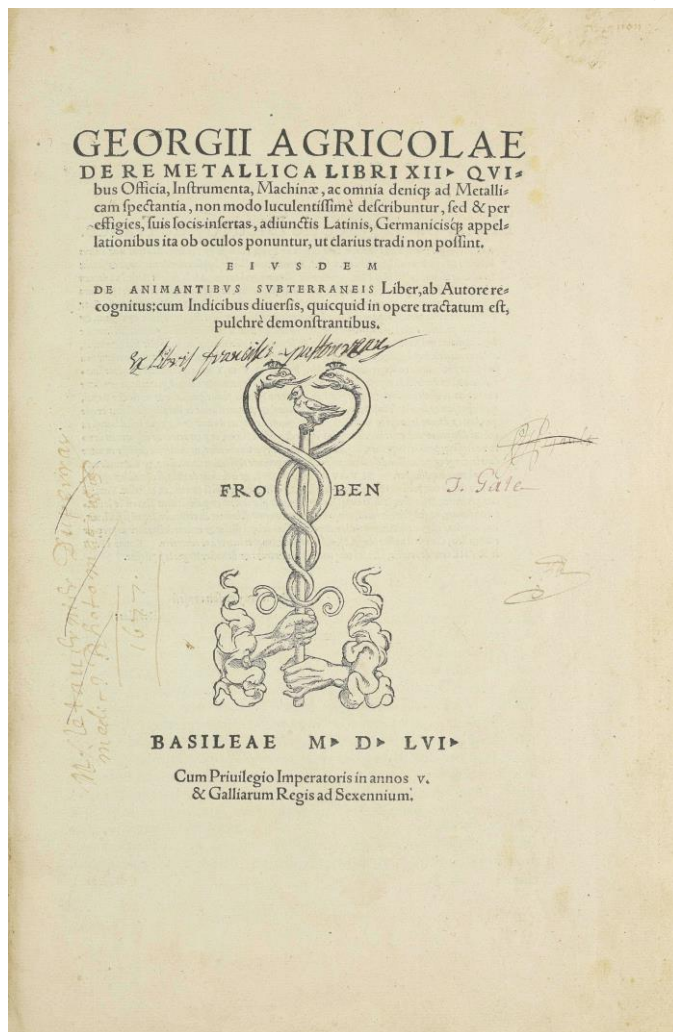 GEORGII AGRICOLAE
DE RE METALLICA LIBRI XII▸ QVI⸗
bus Officia, Inſtrumenta, Machinæ, ac omnia deniqꝫ ad Metalli⸗
cam ſpectantia, non modo luculentiſſimè deſcribuntur, ſed & per
effigies, ſuis locis inſertas, adiunctis Latinis, Germanicisꝗꝫ appel⸗
lationibus ita ob oculos ponuntur, ut clarius tradi non poſſint.
EIVSDEM
DE ANIMANTIBVS SVBTERRANEIS Liber, ab Autore re⸗
cognitus: cum Indicibus diuerſis, quicquid in opere tractatum eſt,
pulchrè demonſtrantibus.
Ex Libris francisci
FRO BEN
J. Gâte
1677.
BASILEAE M▸ D▸ LVI▸
Cum Priuilegio Imperatoris in annos v.
& Galliarum Regis ad Sexennium.